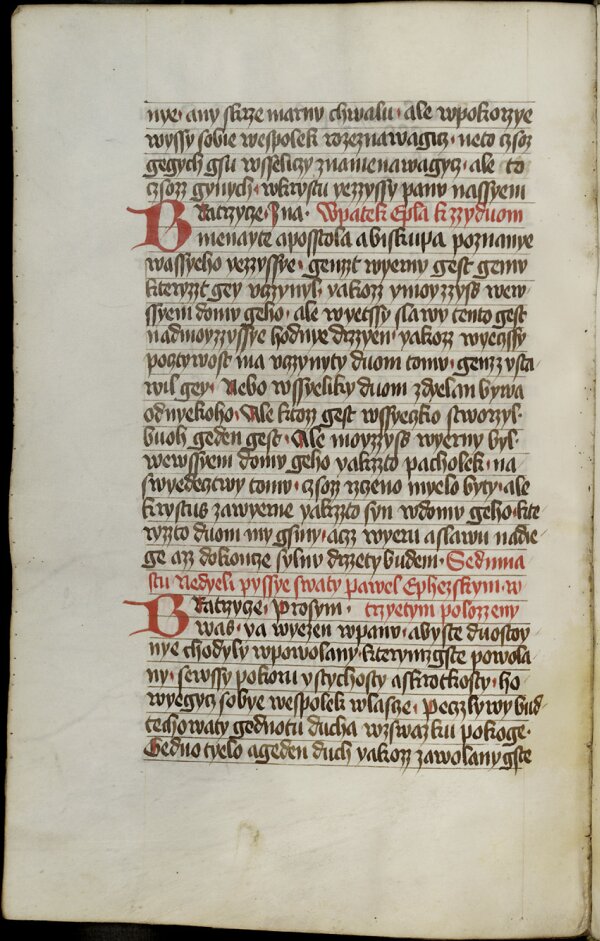 nye· any skrze marnu chwalu· ale wpokorzye
wyssy sobie wespolek rozeznawagicz· neto czsoz
gegych gsu wsseliczy znamenawagycz· ale to
czsozz gynych· wkrystu yezzyssy panu nassyem
Bratrzyze· Jna· Wpatek Epla k zzyduom
menayte aposstola abiskupa poznanye
wassyeho yezzyssye· genzzt wyerny gest gemu
kteryzzt gey vczynyl· yakozz ymoyzzyss wew-
ssyem domu geho· ale wyetssy slawy tento gest
nadmoyzzyssye hodnye drzzyen· yakozz wyeczssy
pocztywost ma vczynyty duom tomu· genzz vsta-
wil gey· Nebo wssyeliky duom zdyelan bywa
odnyekoho· Ale ktozz gest wssyeczko stworzyl·
buoh geden gest· Ale moyzzyss wyerny byl·
wewssyem domu geho yakzzto pacholek· na
swyedecztwy tomu· czsozz rzeno myelo byty· ale
krystus zawyerne yakzzto syn wdomu geho· kte-
ryzzto duom my gsmy· aczz wyeru aslawu nadie-
ge azz dokoncze sylnu drzzety budem· Sedmna-
stu Nedyeli pyssye swaty pawel Ephezskym· w
Bratrzyze· Prosym· trzyetym polozzeny
was· ya wyezen wpanu· abyste duostoy-
nye chodyly wpowolany· kterymzgste powola-
ny· sewssy pokoru ystychosty askrotkosty· ho-
wyegycz sobye wespolek wlasce· Peczlywy bud-
te chowaty gednotu ducha wzswazku pokoge·
Gedno tyelo ageden duch yakozz zawolany gste